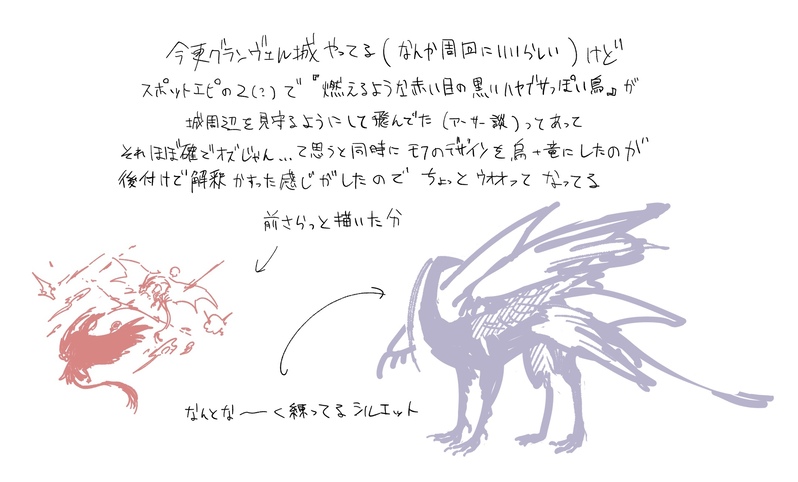 今更グランヴェル城やってる(なんか周回にいいらしい)けど
スポットエピの2(?)で『燃えるような赤い目の黒いハヤブサっぽい鳥』が
城周辺を見守るようにして飛んでた(アーサー談)ってあって
それほぼ確でオズじゃん…て思うと同時にモフのデザインを鳥+竜にしたのが
後付けで解釈かすった感じがしたのでちょっとウオオってなってる
前さらっと描いた分
なんとな〜く練ってるシルエット